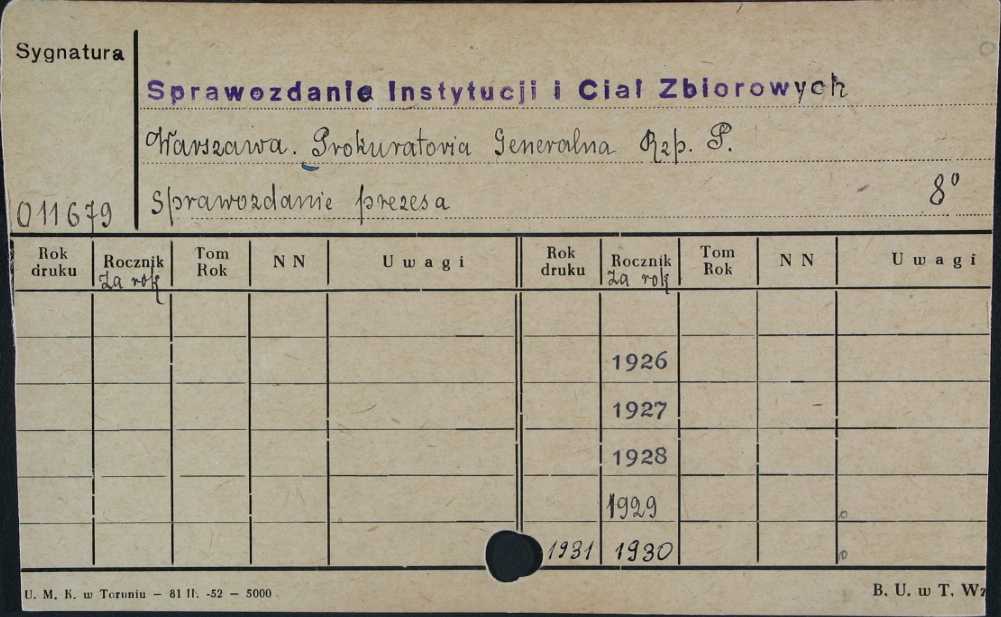 Sygnatura
Sprawozdania Instytucji i Ciał Zbiorowych
Warszawa. Prokuratoria Generalna Rzp. P.
Sprawozdanie prezesa 8°
011679
Rok druku Rocznik Tom Rok N N Uwagi Rok druku Rocznik Tom Rok N N Uwagi
Za rok Za rok
1926
1927
1928
1929
1931 1930
U. M. K. w Toruniu — 81 II. -52 — 5000 B. U. w T. Wz